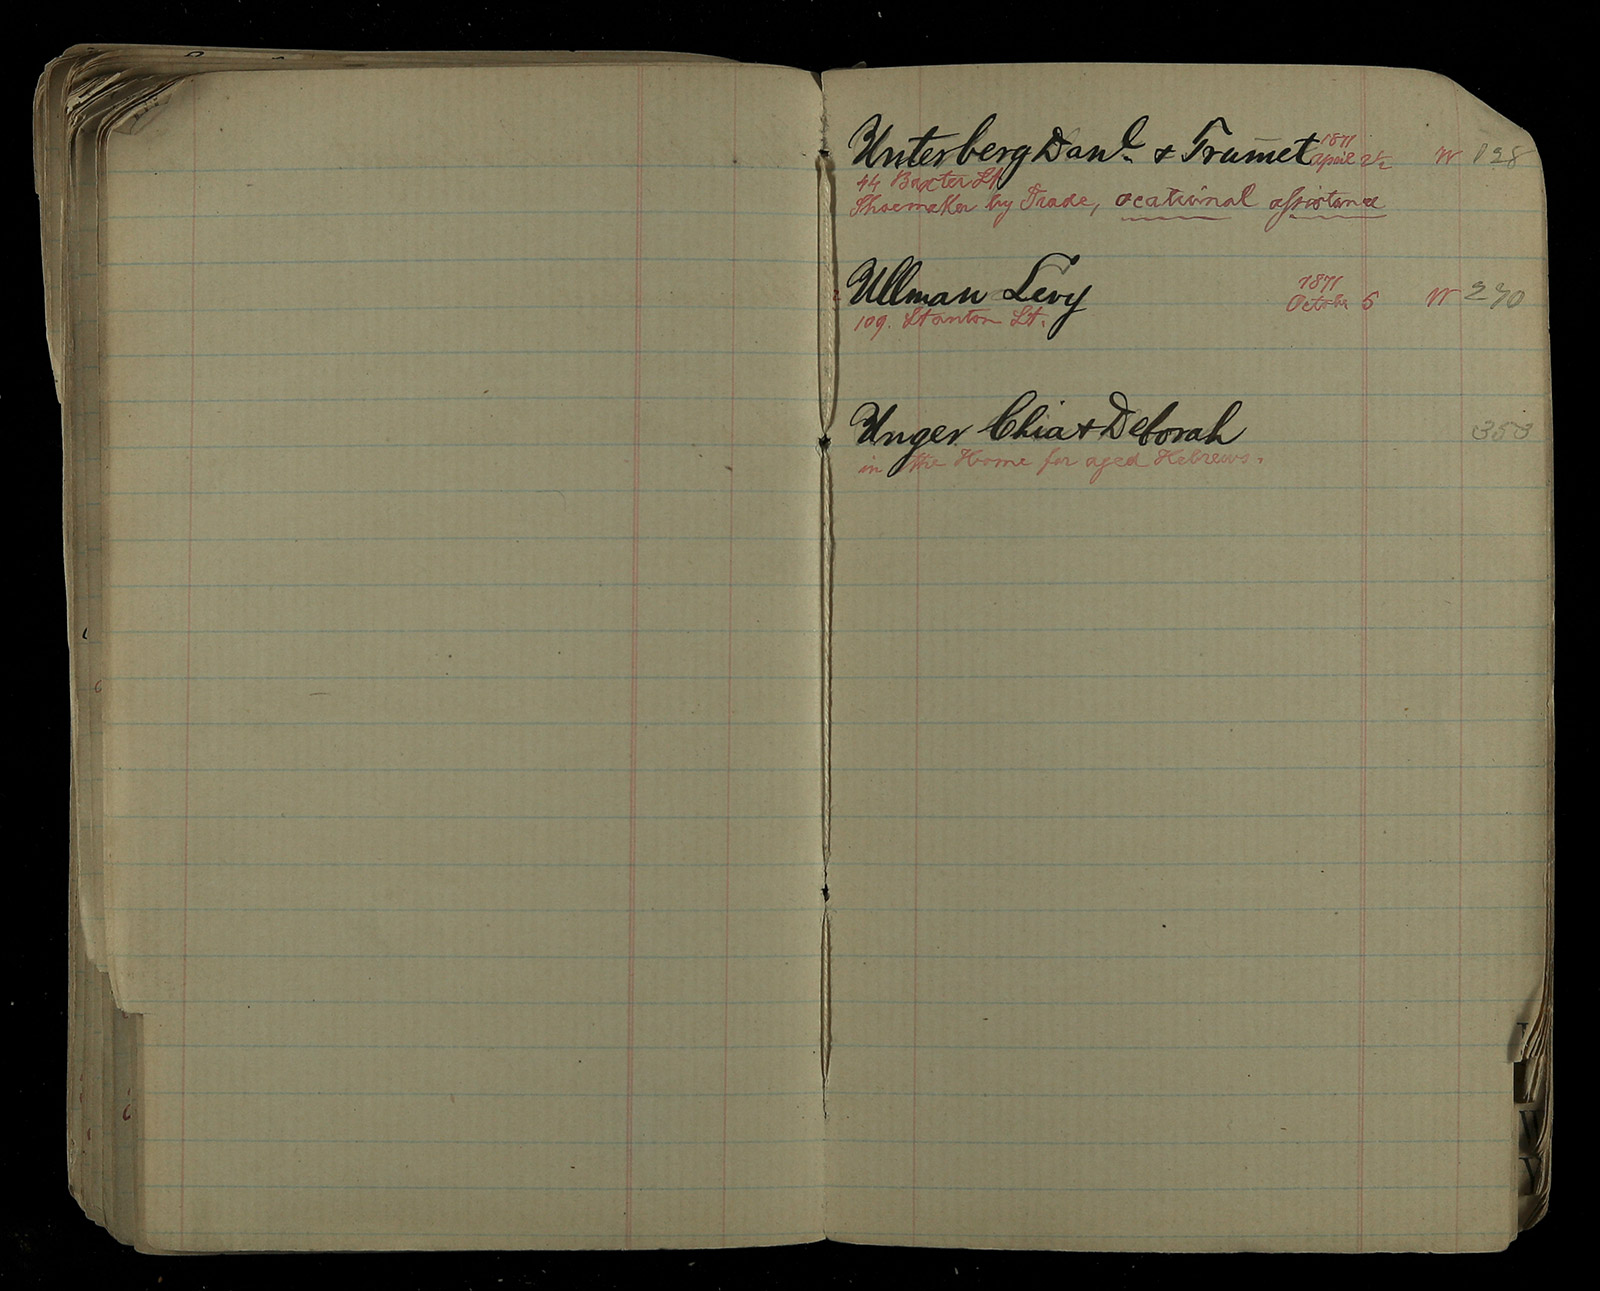 Unterberg Danl. & Tramet 1871 april 2½ N 128
44 Baxter St
Shoemaker by Trade, ocational assistance
Ullman Levy 1871 October 5 N 270
109. Stanton St.
Unger Chia & Deborah 353
in the Home for aged Hebrews.
W
Y